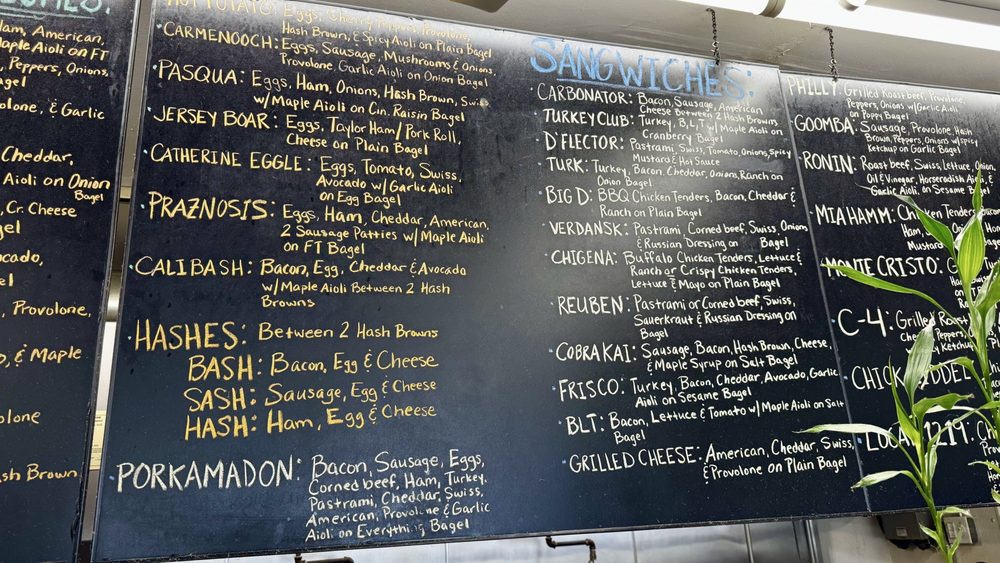 Ham, American,
Maple Aioli on FT
Peppers, Onions,
Provolone, & Garlic
Cheddar,
Aioli on Onion
Bagel
Cr. Cheese
Provolone,
& Maple
Hash Brown
Eggs, Cherry Peppers, Provolone,
Hash Brown, & Spicy Aioli on Plain Bagel
CARMENOOCH: Eggs, Sausage, Mushrooms & Onions,
Provolone, Garlic Aioli on Onion Bagel
PASQUA: Eggs, Ham, Onions, Hash Brown, Swiss
w/ Maple Aioli on Cin. Raisin Bagel
JERSEY BOAR: Eggs, Taylor Ham/Pork Roll,
Cheese on Plain Bagel
CATHERINE EGGLE: Eggs, Tomato, Swiss,
Avocado w/ Garlic Aioli
on Egg Bagel
PRAZNOSIS: Eggs, Ham, Cheddar, American,
2 Sausage Patties w/ Maple Aioli
on FT Bagel
CALIBASH: Bacon, Egg, Cheddar & Avocado
w/ Maple Aioli Between 2 Hash
Browns
HASHES: Between 2 Hash Browns
BASH: Bacon, Egg & Cheese
SASH: Sausage, Egg & Cheese
HASH: Ham, Egg & Cheese
PORKAMADON: Bacon, Sausage, Eggs,
Corned beef, Ham, Turkey,
Pastrami, Cheddar, Swiss,
American, Provolone & Garlic
Aioli on Everything Bagel
SANGWICHES:
CARBONATOR: Bacon, Sausage, American
Cheese Between 2 Hash Browns
TURKEY CLUB: Turkey, B, L, T w/ Maple Aioli on
Cranberry Bagel
D'FLECTOR: Pastrami, Swiss, Tomato, Onions, Spicy
Mustard & Hot Sauce
TURK: Turkey, Bacon, Cheddar, Onions, Ranch on
Onion Bagel
BIG D: BBQ Chicken Tenders, Bacon, Cheddar &
Ranch on Plain Bagel
VERDANSK: Pastrami, Corned beef, Swiss, Onions
& Russian Dressing on Bagel
CHIGENA: Buffalo Chicken Tenders, Lettuce &
Ranch or Crispy Chicken Tenders,
Lettuce & Mayo on Plain Bagel
REUBEN: Pastrami or Corned beef, Swiss,
Sauerkraut & Russian Dressing on
Bagel
COBRA KAI: Sausage, Bacon, Hash Brown, Cheese,
& Maple Syrup on Salt Bagel
FRISCO: Turkey, Bacon, Cheddar, Avocado, Garlic
Aioli on Sesame Bagel
BLT: Bacon, Lettuce & Tomato w/ Maple Aioli on Salt
Bagel
GRILLED CHEESE: American, Cheddar, Swiss,
& Provolone on Plain Bagel
PHILLY: Grilled Roast beef, Provolone,
Peppers, Onions w/ Garlic Aioli
on Poppy Bagel
GOOMBA: Sausage, Provolone, Hash
Brown, Peppers, Onions w/ spicy
Ketchup on Garlic Bagel
RONIN: Roast beef, Swiss, Lettuce, Onion
Oil & Vinegar, Horseradish Aioli, &
Garlic Aioli, on Sesame Bagel
MIA HAMM: Chicken Tenders,
Ham,
MONTE CRISTO:
C-4: Grilled Roast
Ketchup
CHICK
LOCAL 1219: